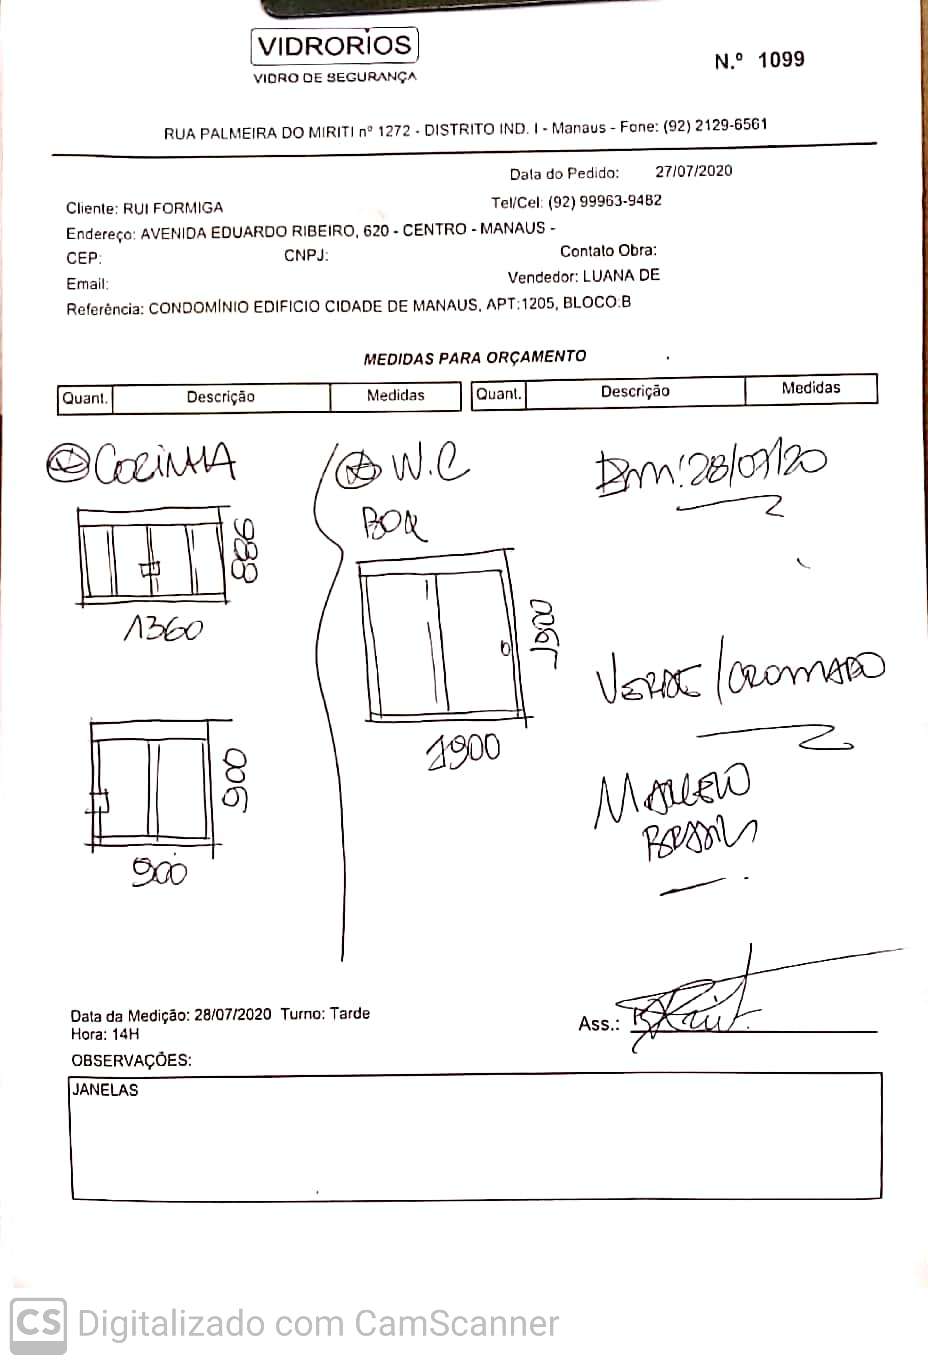 VIDRORIOS
VIDRO DE SEGURANÇA
N.º 1099
RUA PALMEIRA DO MIRITI nº 1272 - DISTRITO IND. I - Manaus - Fone: (92) 2129-6561
Data do Pedido: 27/07/2020
Cliente: RUI FORMIGA Tel/Cel: (92) 99963-9482
Endereço: AVENIDA EDUARDO RIBEIRO, 620 - CENTRO - MANAUS -
CEP: CNPJ: Contato Obra:
Email: Vendedor: LUANA DE
Referência: CONDOMÍNIO EDIFICIO CIDADE DE MANAUS, APT:1205, BLOCO:B
MEDIDAS PARA ORÇAMENTO
Quant. Descrição Medidas Quant. Descrição Medidas
COZINHA
988
1360
900
900
W.C
BOX
1900
1900
28/07/20
VERDE/CROMADO
Data da Medição: 28/07/2020 Turno: Tarde
Hora: 14H
Ass.:
OBSERVAÇÕES:
JANELAS
CS Digitalizado com CamScanner